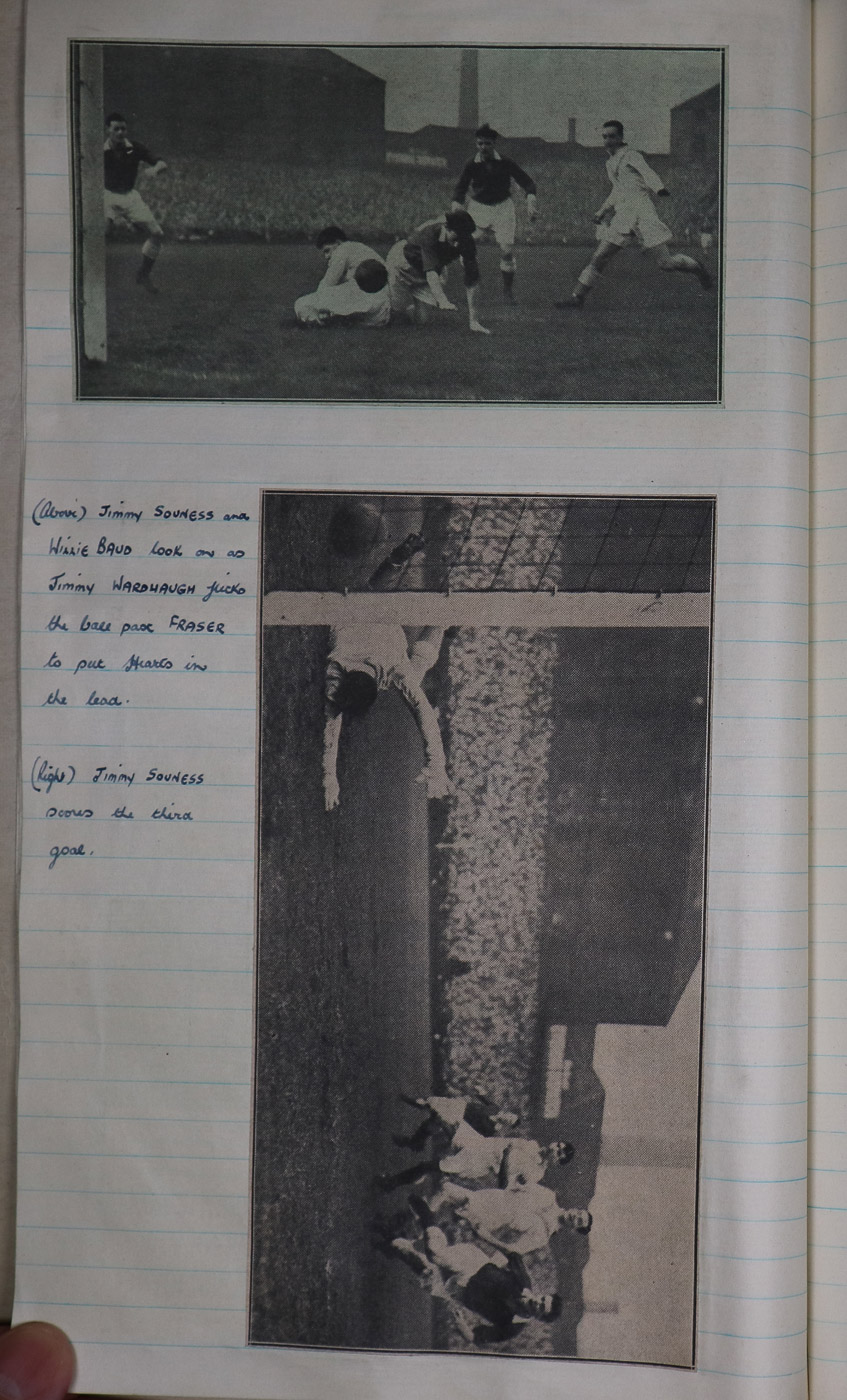 (Above) Jimmy SOUNESS and
WILLIE BAUD look on as
Jimmy WARDHAUGH flicks
the ball past FRASER
to put Hearts in
the lead.
(Right) Jimmy SOUNESS
scores the third
goal.